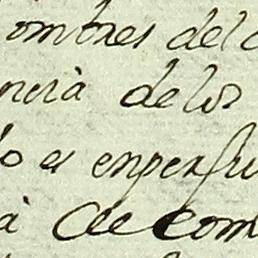 ombres del
ncia de los
lo es enperju
a de com